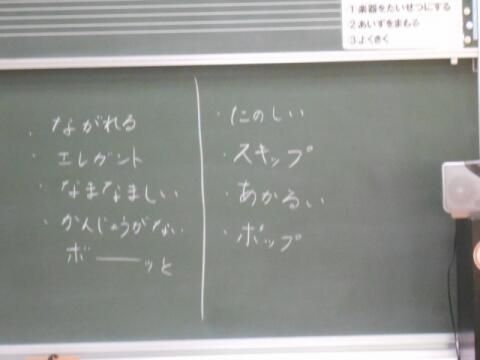 1 楽器をたいせつにする
2 あいずをまもる
3 よくきく
・ながれる
・エレガント
・なまなましい
・かんじょうがない
ボーーッと
・たのしい
・スキップ
・あかるい
・ポップ